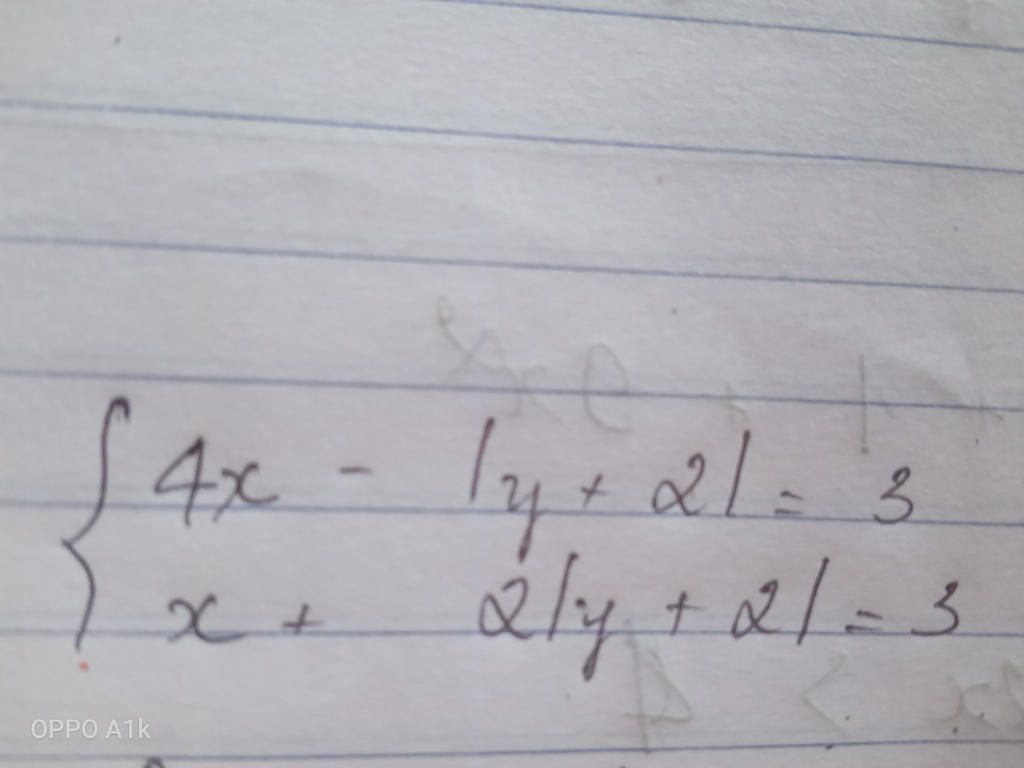 4x - |y + 2| = 3
x + 2|y + 2| = 3
OPPO A1k